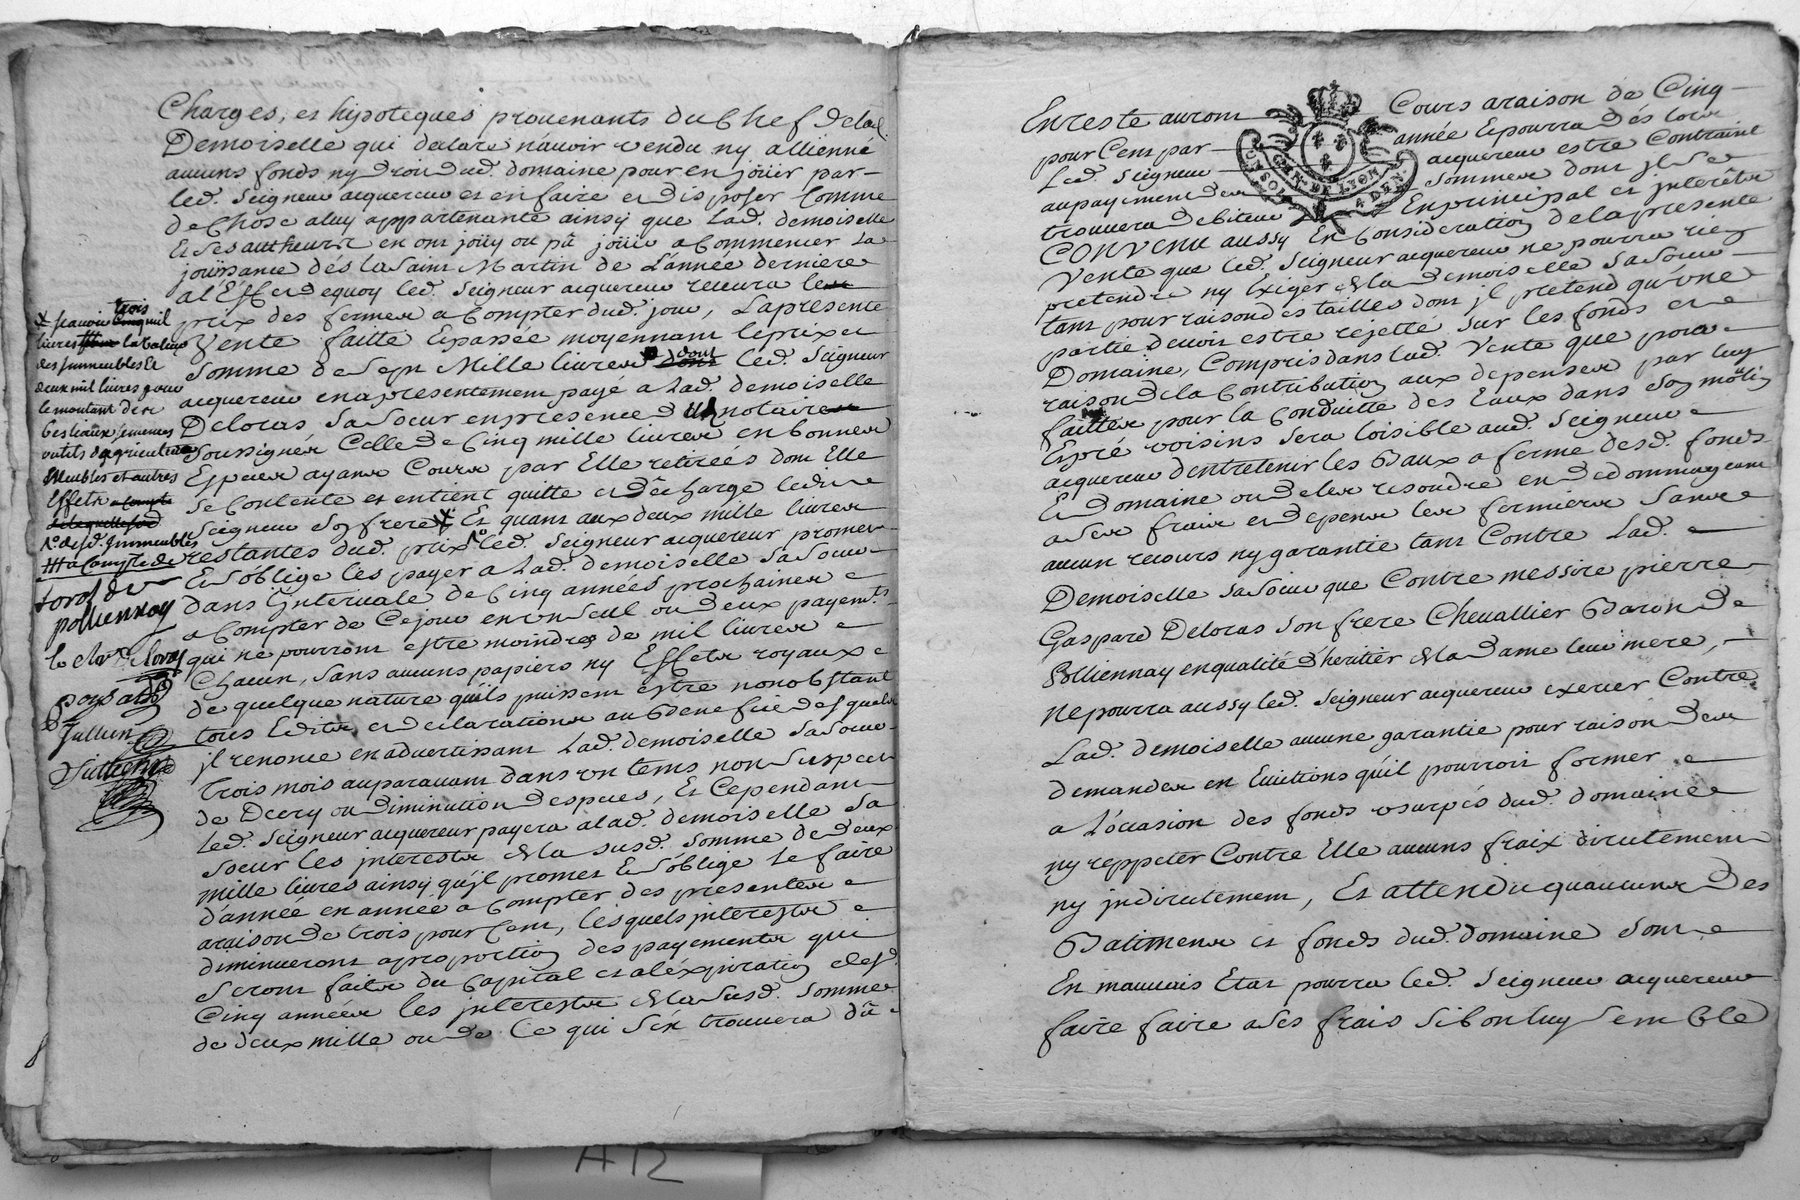 Charges, et hipoteques prouenants du Chef de lad.
Demoiselle qui declare n'auoir vendu ny allienné
aucuns fonds ny droit dud. domaine pour en joüir par
led. Seigneur acquereur et en faire et disposer Comme
de Chose a luy appartenante ainsy que Lad. demoiselle
Et ses autheurs en ont joüy ou pû joüir a Commencer La
joüissance dés la Saint Martin de L'année derniere
a l'Effet dequoy led. Seigneur acquereur receura le
prix des fermes a Compter dud. jour, La presente
Vente faitte Et passée moyennant le prix et
Somme de Sept Mille liures dont led. Seigneur
acquereur en a presentement payé a Lad. demoiselle
Deloras Sa Soeur en presence du notaire
Soussigné Celle de Cinq mille liures en bonnes
Especes ayant Cours par Elle retirées dont Elle
Se Contente et en tient quitte et décharge ledit
Seigneur Son frere Et quant aux deux mille liures
restantes dud. prix led. Seigneur acquereur promet
Et s'oblige les payer a Lad. demoiselle Sa Soeur
dans L'interuale de Cinq années prochaines
a Compter de Ce jour en vn Seul ou deux payemts.
qui ne pourront estre moindres de mil liures
Chacun, Sans aucuns papiers ny Effets royaux
de quelque nature qu'ils puissent estre nonobstant
tous Edits et declarations au Benefice desquels
jl renonce en aduertissant Lad. demoiselle Sa Soeur
Trois mois auparauant dans vn tems non Suspect
de Decry ou diminution d'especes, Et Cependant
Led. Seigneur acquereur payera a lad. demoiselle Sa
Soeur les jnterests de la susd. Somme de deux
mille liures ainsy qu'jl promet Et s'oblige le faire
d'année en année a Compter des presentes
a raison de trois pour Cent, lesquels jnterests
diminueront a proportion des payements qui
Seront faits du Capital et a l'éxpiration desd.
Cinq années les jnterests de la Susd. Somme
de deux mille ou de Ce qui s'en trouuera dû
scauoir trois mil
liures la Valeur
des Jmmeubles Et
deux mil liures pour
le montant des
bestiaux semences
outils d'agriculture
Meubles et autres
Effets
desd. Jmmeubles
a Compte de
Loras de
polliennay
Jullien
Jullien
En reste auront Cours a raison de Cinq
pour Cent par année Et pourra dés lors
Led. Seigneur acquereur estre Contraint
au payement des Sommes dont jl Se
trouuera debiteur En principal et jnterêts
CONVENU aussy En Consideration de la presente
Vente que led. Seigneur acquereur ne pourra rien
pretendre ny Exiger de la demoiselle Sa Soeur
tant pour raison des tailles dont jl pretend qu'vne
partie deuoit estre rejetté Sur les fonds et
Domaine, Compris dans lad. Vente que pour
raison de la Contribution aux depenses par luy
faittes pour la Conduitte des Eaux dans Son moûlin
Et pré voisins Sera loisible aud. Seigneur
acquereur d'entretenir les Baux a ferme desd. fonds
Et domaine ou de les resoudre en dedommageant
a Ses frais et depens les fermiers Sans
aucun recours ny garantie tant Contre Lad.
Demoiselle Sa Soeur que Contre messire pierre
Gaspard Deloras Son frere Chevallier Baron de
Polliennay en qualité d'heritier de la Dame leur mere,
Ne pourra aussy led. Seigneur acquereur exercer Contre
Lad. demoiselle aucune garantie pour raison des
demandes en Euictions qu'il pourroit former
a L'occasion des fonds vsurpés dud. domaine
ny reppeter Contre Elle aucuns fraix directement
ny jndirectement, Et attendu qu'aucuns des
Batimens et fonds dud. domaine Sont
En mauuais Etat pourra led. Seigneur acquereur
faire faire a Ses frais Si bon luy Semble
GEN. DE LYON
A 12